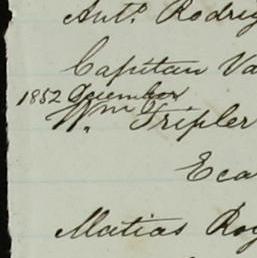 Anto. Rodrig
Capitan Va
1852 December
Wm. Tripler
Eca
Matias Roy